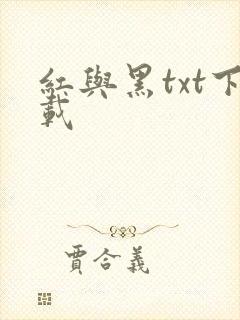 红與黑txt下
載
賈合義